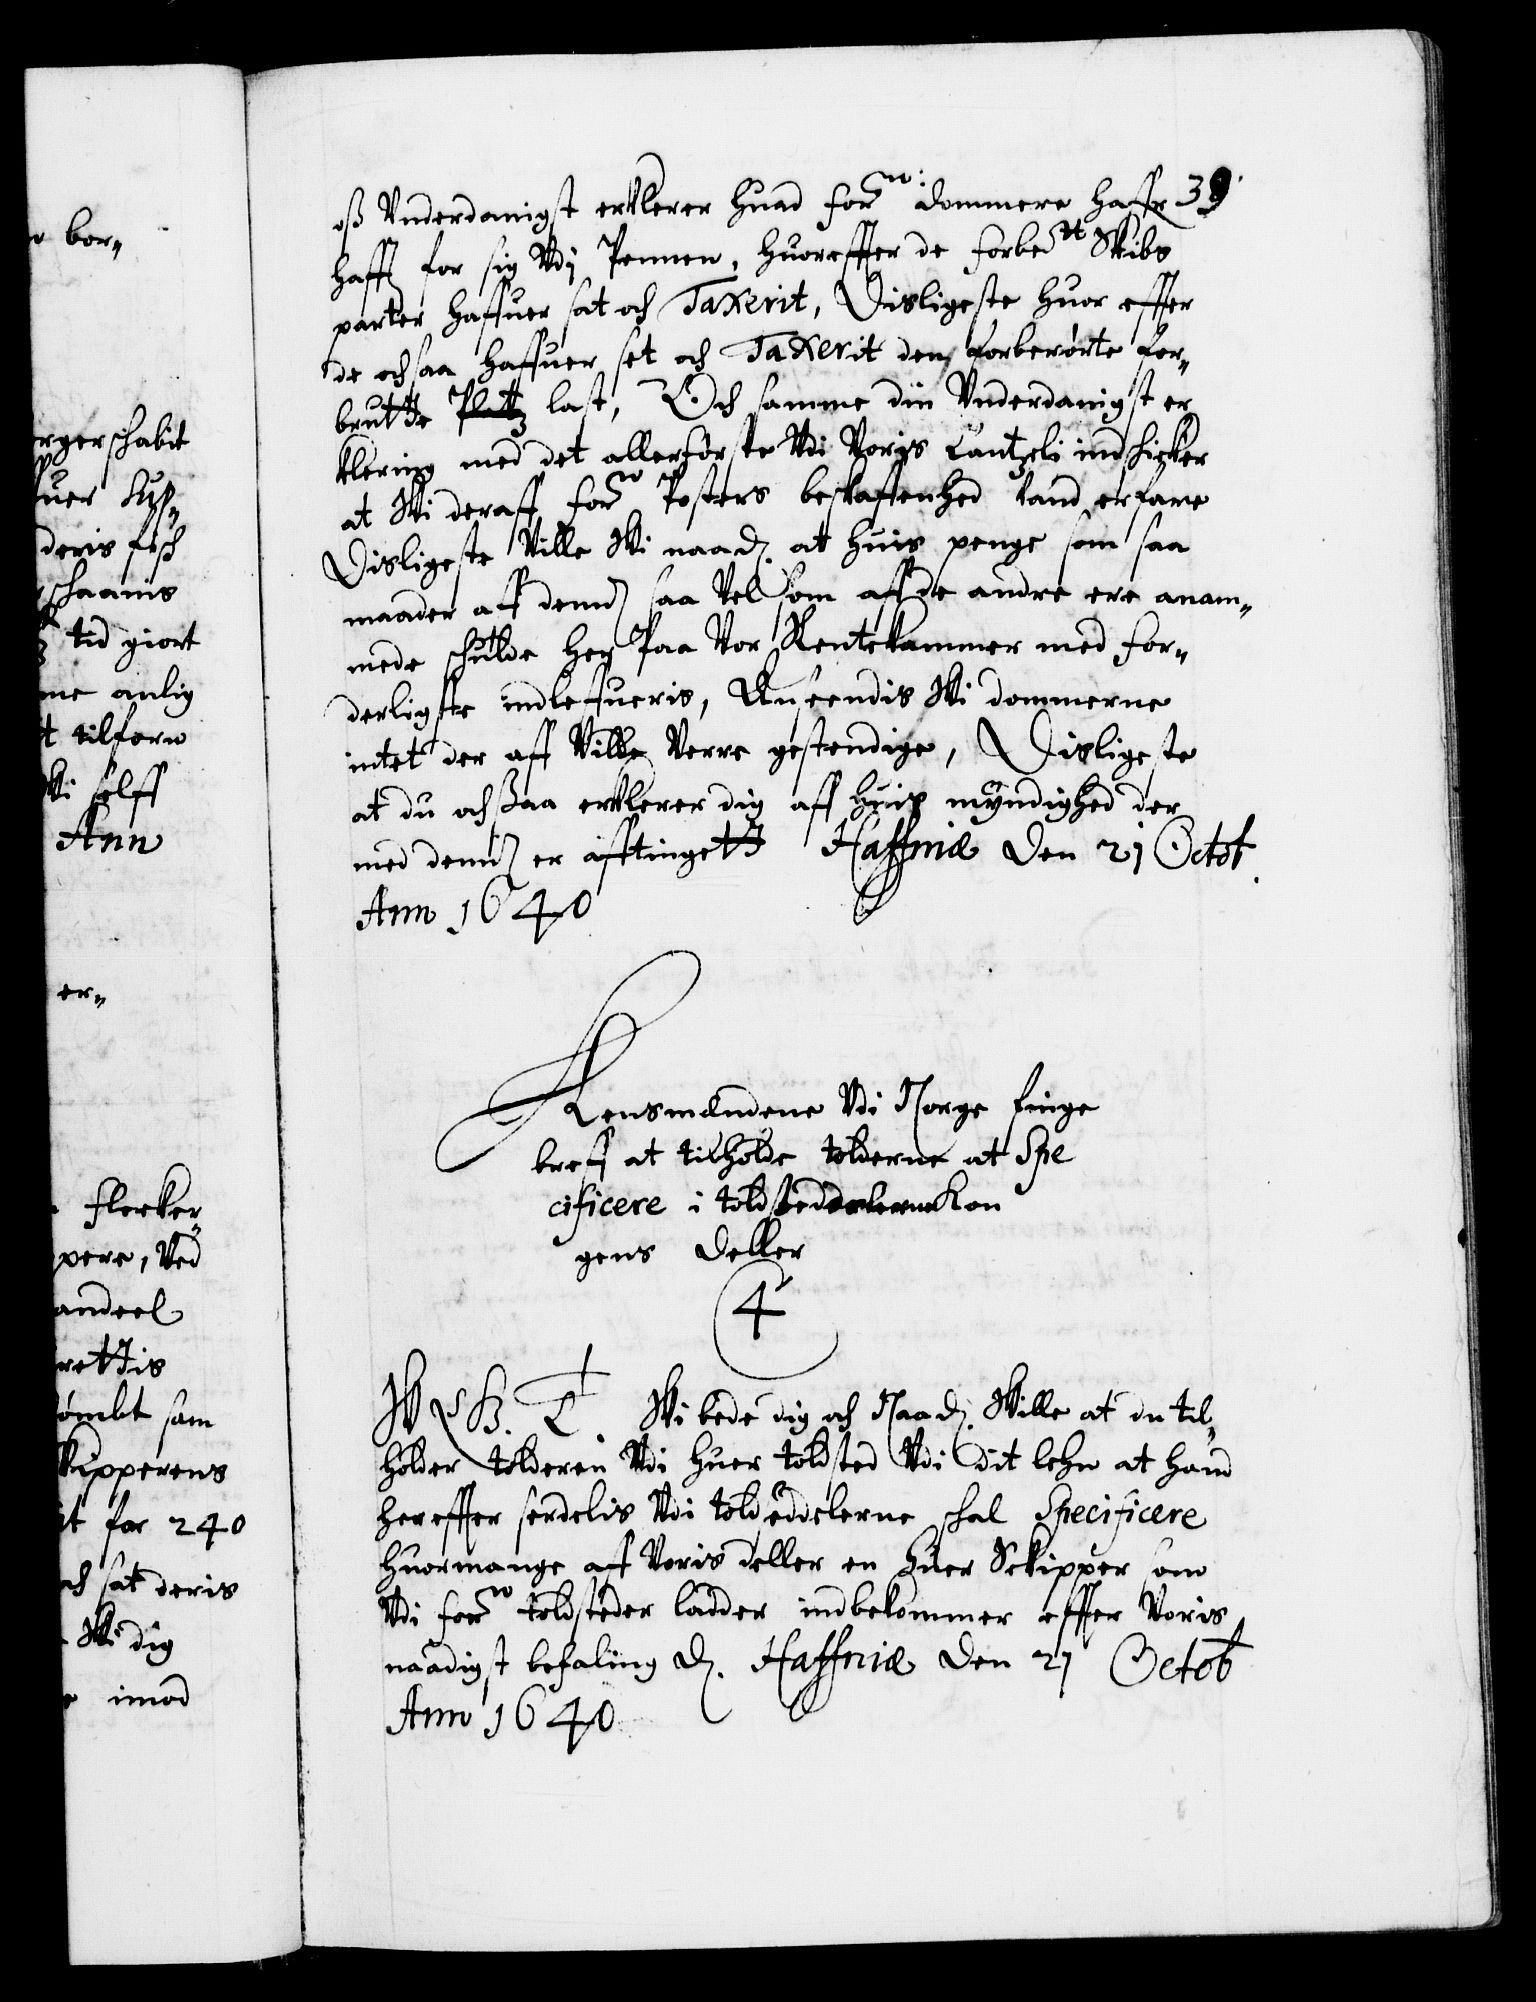 bor„
ergerschabit
deris fisch
schaanis
tid giort
me anlig
tilforn
Wi selff
Ann
er„
flerker„
pere, Ved
andeel
rettis
dømbt sam
Skipperens
for 240
och sat deris
Wi dig
imod
39
oß Vnderdanigst erklerer huad forne: dommere haffr
hafft for sig Vdj Pennen, huoreffter de forbete Skibs
parter haffuer sat och Taxerit, Disligeste huor effter
de ochsaa haffuer set och Taxerit den forberørte for„
brutte Platz last, Och samme din Vnderdanigst er
klering med det allerførste Vdi Voris Cantzeli indschicker
at Wi deraff forne Posters beskaffenhed kand erfare
Disligeste Ville Wi naad. at huis penge som saa
maader aff dennd saa Vel som aff de andre ere anam„
mede schulde her Paa Vor Rentekammer med for„
derligste indleffueris, Anseendis Wi dommerne
intet der aff Ville Verre gestendige, Disligeste
at du ochsaa erklerer dig aff huis myndighed der
med dennd er afftingett Haffniæ Den 21 Octob
Ann 1640
Lensmændene Vdi Norge finge
breff at tilholde tolderne at Spe
cificere i toldseddelerne Kon
gens Deller
4
Wi bede dig och Naad. Wille at du til„
holder tolderen Vdi huer toldsted Vdi dit lehn at hand
hereffter serdelis Vdi toldseddelerne schal Specificere
huormange aff Voris deller en huer Skipper som
Vdi forne toldsteder ladder indbekommer effter Voris
naadigst befaling D. Haffniæ Den 21 Octob
Ann 1640